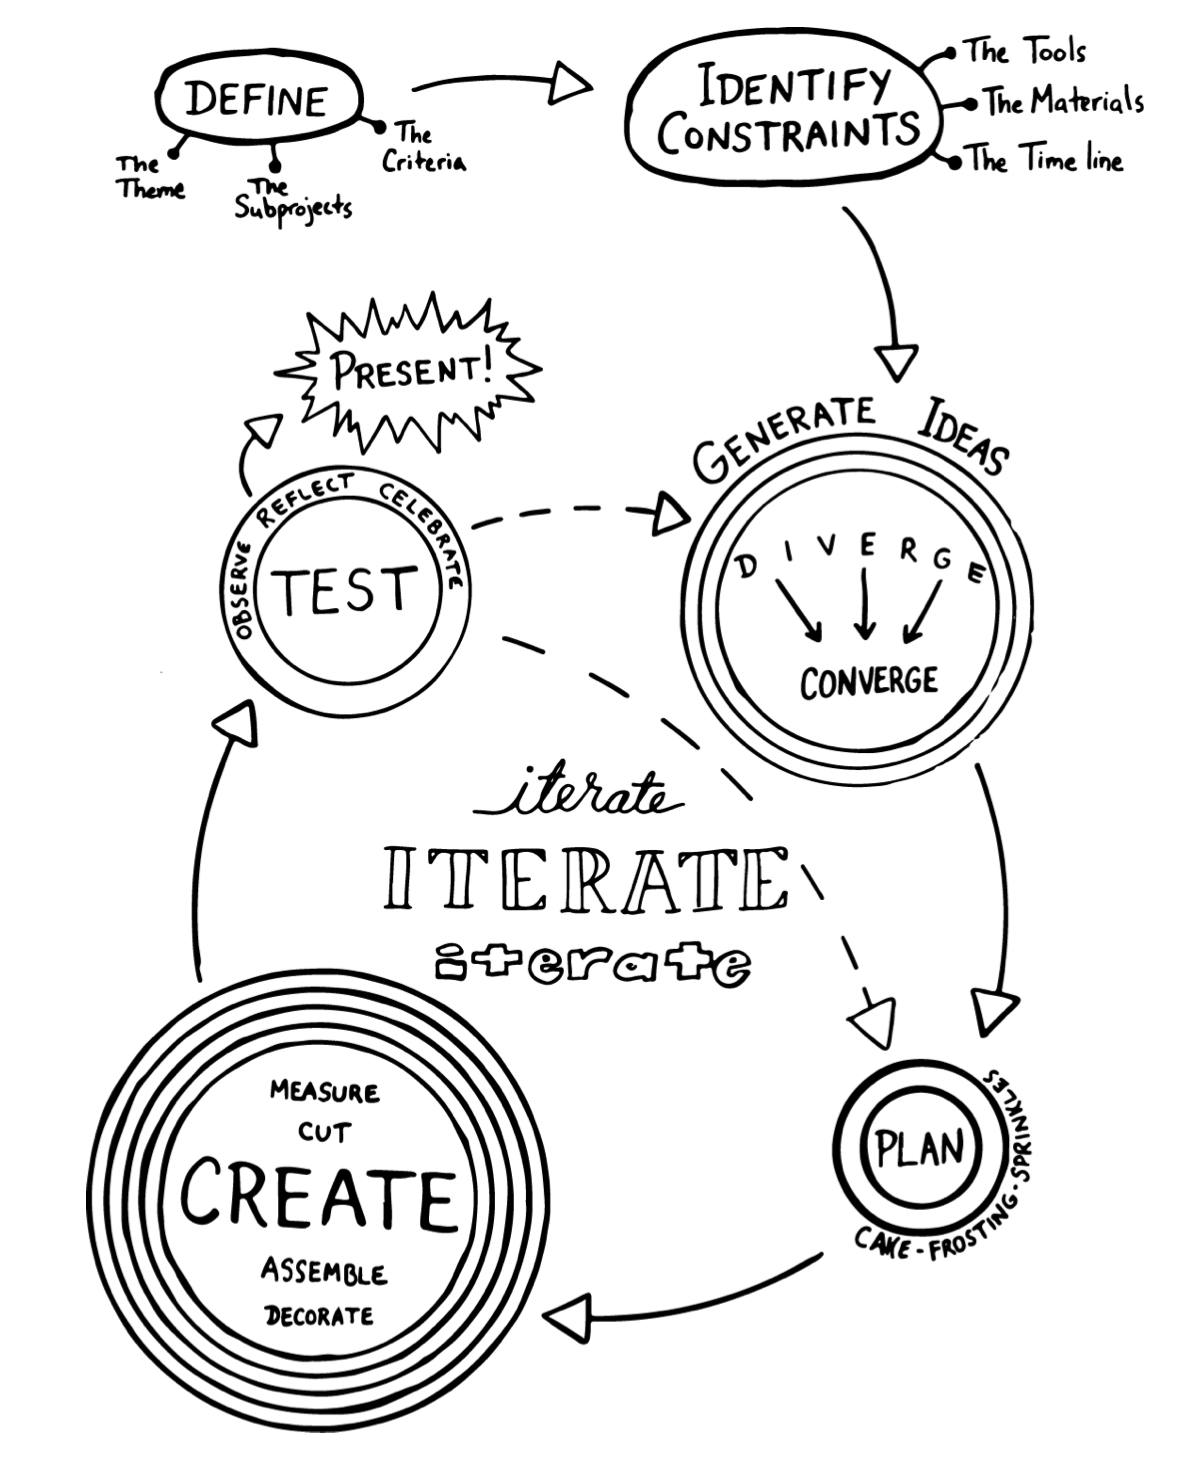 DEFINE
The
Theme
The
Subprojects
The
Criteria
IDENTIFY
CONSTRAINTS
The Tools
The Materials
The Time line
PRESENT!
GENERATE IDEAS
DIVERGE
CONVERGE
OBSERVE REFLECT CELEBRATE
TEST
iterate
ITERATE
iterate
PLAN
CAKE - FROSTING - SPRINKLES
MEASURE
CUT
CREATE
ASSEMBLE
DECORATE